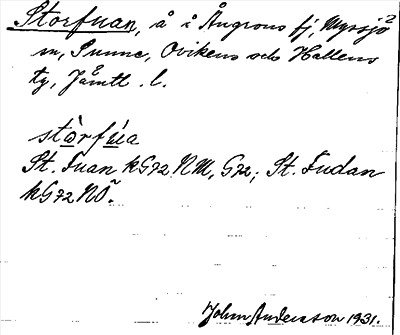 Storfuan, å i Ångrons fj, Myssjö
m, Sunne, Ovikens och Hallens
ty, Jämtl. l.
stòrfúa
St. Fuan kG72NM, G72; St. Fudan
kG72NÖ.
John Andersson 1931.